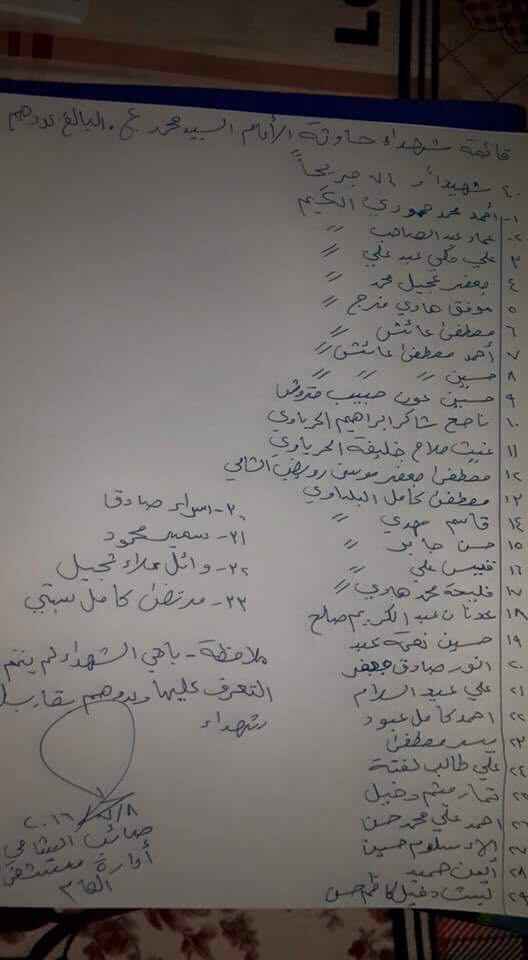 قائمة شهداء حادثة الأمام السيد محمد ع. والبالغ عددهم
٤٠ شهيداً و ٧٤ جريحاً
١- أحمد محمد حمودي الحكيم
٢- عماد عبد الصاحب //
٣ علي مكي عبد علي //
٤ جعفر عجيل محمد //
٥ موفق هادي فرج //
٦ مصطفى عائش //
٧ أحمد مصطفى عائش //
٨ حسين // // //
٩ حسين عون حبيب
١٠ ناصح شاكر ابراهيم الحرباوي
١١ غيث صلاح خليفة الحرباوي
١٢ مصطفى جعفر موسى الشامي
١٣ مصطفى كامل البلداوي
١٤ قاسم مهدي //
١٥ حسن جابر //
١٦ قيس علي //
١٧ فليحة محمد هادي //
١٨ عدنان عبد الكريم صالح
١٩ حسين نعمة عبد
٢٠ انور صادق جعفر
٢١ علي عبد السلام
٢٢ احمد كامل عبود
٢٣ مصطفى
٢٤ علي طالب لفتة
٢٥ ميثم دخيل
٢٦ احمد علي محمد حسن
٢٧ الاء سلوم حسين
٢٨ أيمن حميد
٢٩ ليث دخيل كاظم حسن
٣٠- اسراء صادق
٣١- سمير محمود
٣٢- وائل علاء عجيل
٣٣- مرتضى كامل سبتي
ملاحظة - باقي الشهداء لم يتم
التعرف عليها وعددهم
شهداء
٢٠١٦/٧/٨
صائب
أدارة مستشفى
العام